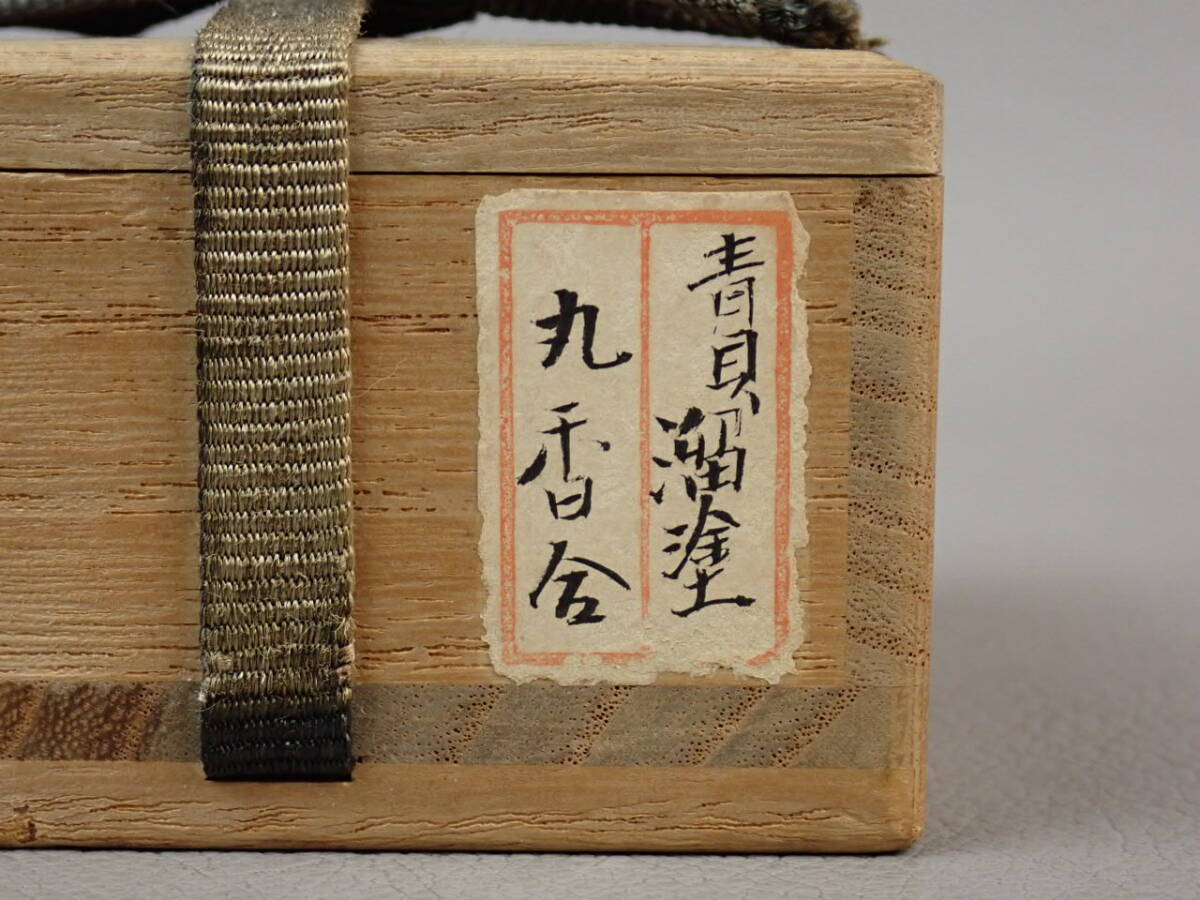 青貝溜塗
丸香合